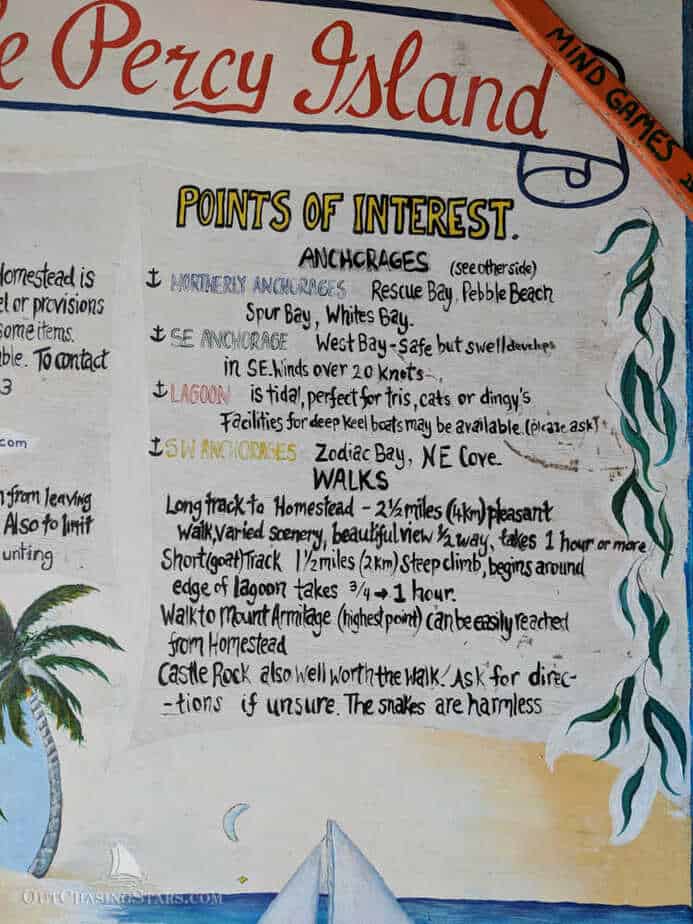 le Percy Island
MIND GAMES
POINTS OF INTEREST.
ANCHORAGES (see other side)
NORTHERLY ANCHORAGES Rescue Bay, Pebble Beach
Spur Bay, Whites Bay.
SE ANCHORAGE West Bay - Safe but swell develops
in SE. Winds over 20 knots
LAGOON is tidal, perfect for tris, cats or dingy's
Facilities for deep keel boats may be available. (please ask)
SW ANCHORAGES Zodiac Bay, NE Cove.
WALKS
Long track to Homestead - 2½ miles (4km) pleasant
walk, varied scenery, beautiful view ½ way, takes 1 hour or more
Short (goat) Track 1½ miles (2km) Steep climb, begins around
edge of lagoon takes ¾ → 1 hour.
Walk to Mount Armitage (highest point) can be easily reached
from Homestead
Castle Rock also well worth the walk! Ask for direc-
-tions if unsure. The snakes are harmless
Homestead is
el or provisions
some items.
ble. To contact
3
com
n from leaving
Also to limit
unting
OutChasingStars.com